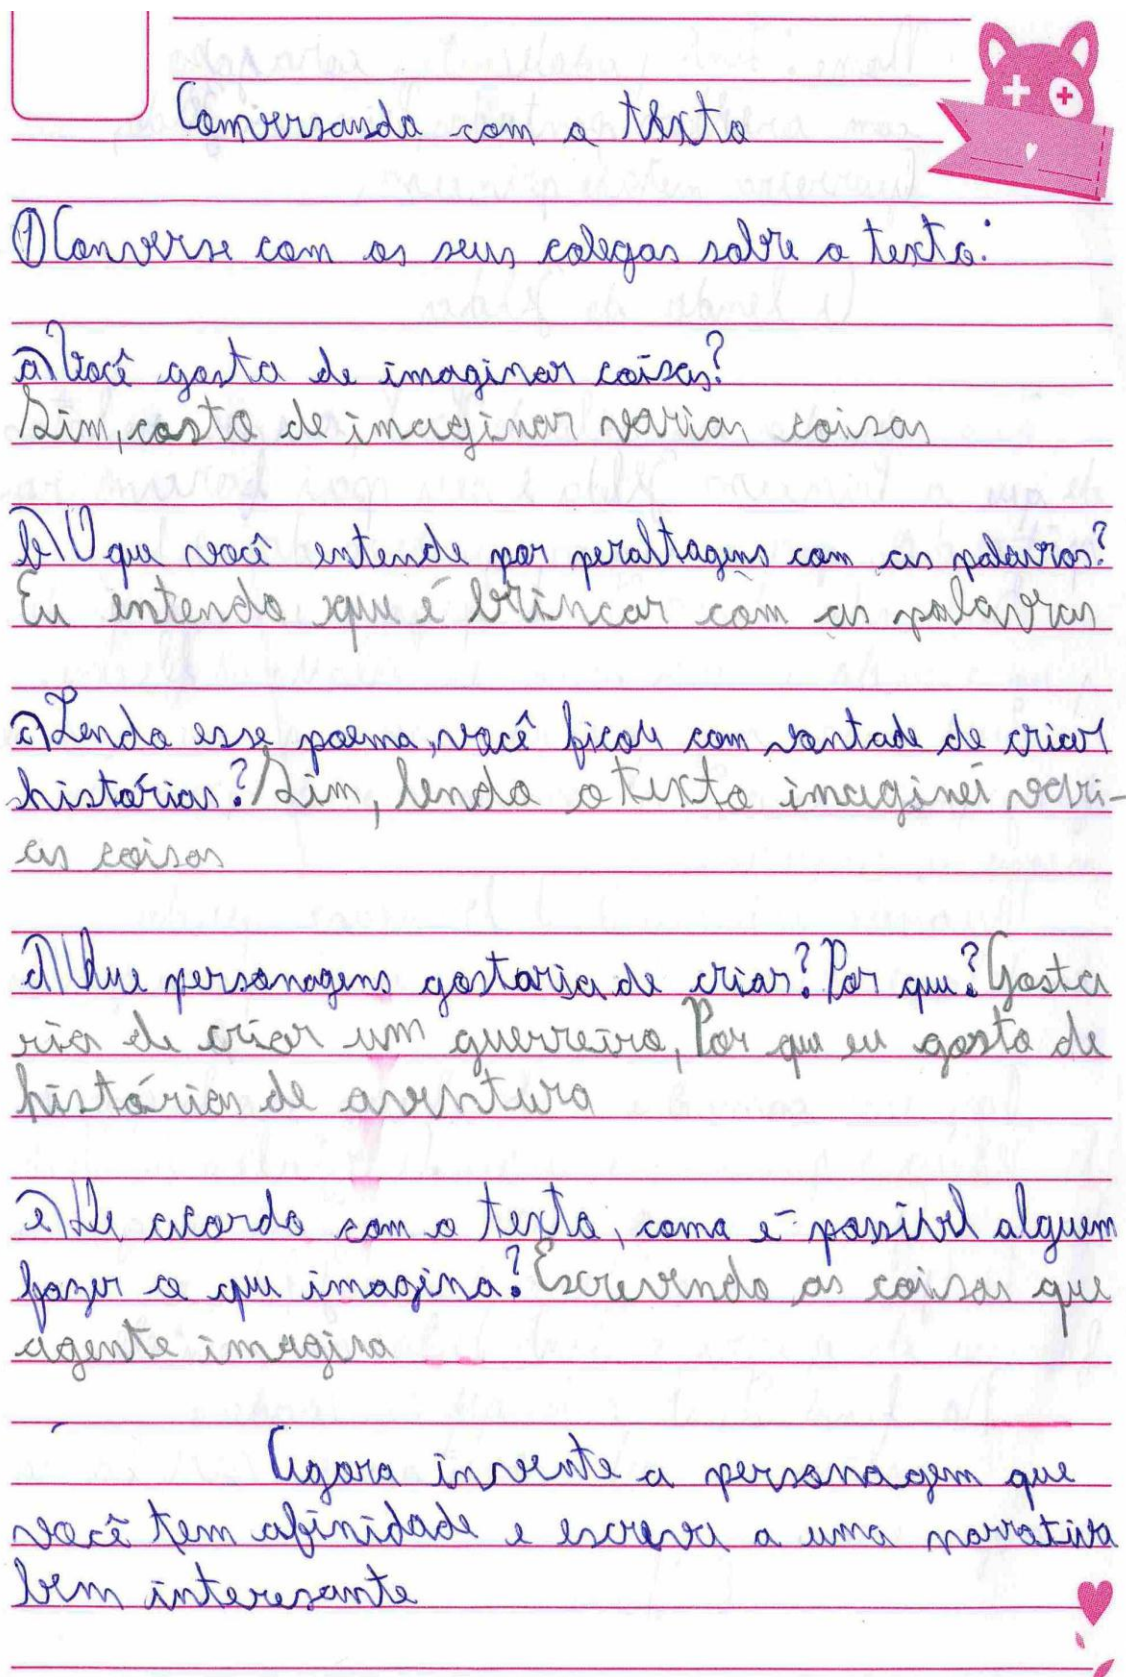 Conversando com o texto
① Converse com os seus colegas sobre o texto:
a) Você gosta de imaginar coisas?
Sim, costo de imaginar varias coisas
b) O que você entende por peraltagens com as palavras?
Eu entendo que é brincar com as palavras
c) Lendo esse poema, você ficou com vontade de criar
histórias? Sim, lendo o texto imaginei vari-
as coisas
d) Que personagens gostaria de criar? Por que? Gosta
ria de criar um guerreiro, Por que eu gosto de
histórias de aventura
e) De acordo com o texto, como é possivel alguem
fazer o que imagina? Escrevendo as coisas que
agente imagina
Agora invente a personagem que
você tem afinidade e escreva a uma narrativa
bem interesante